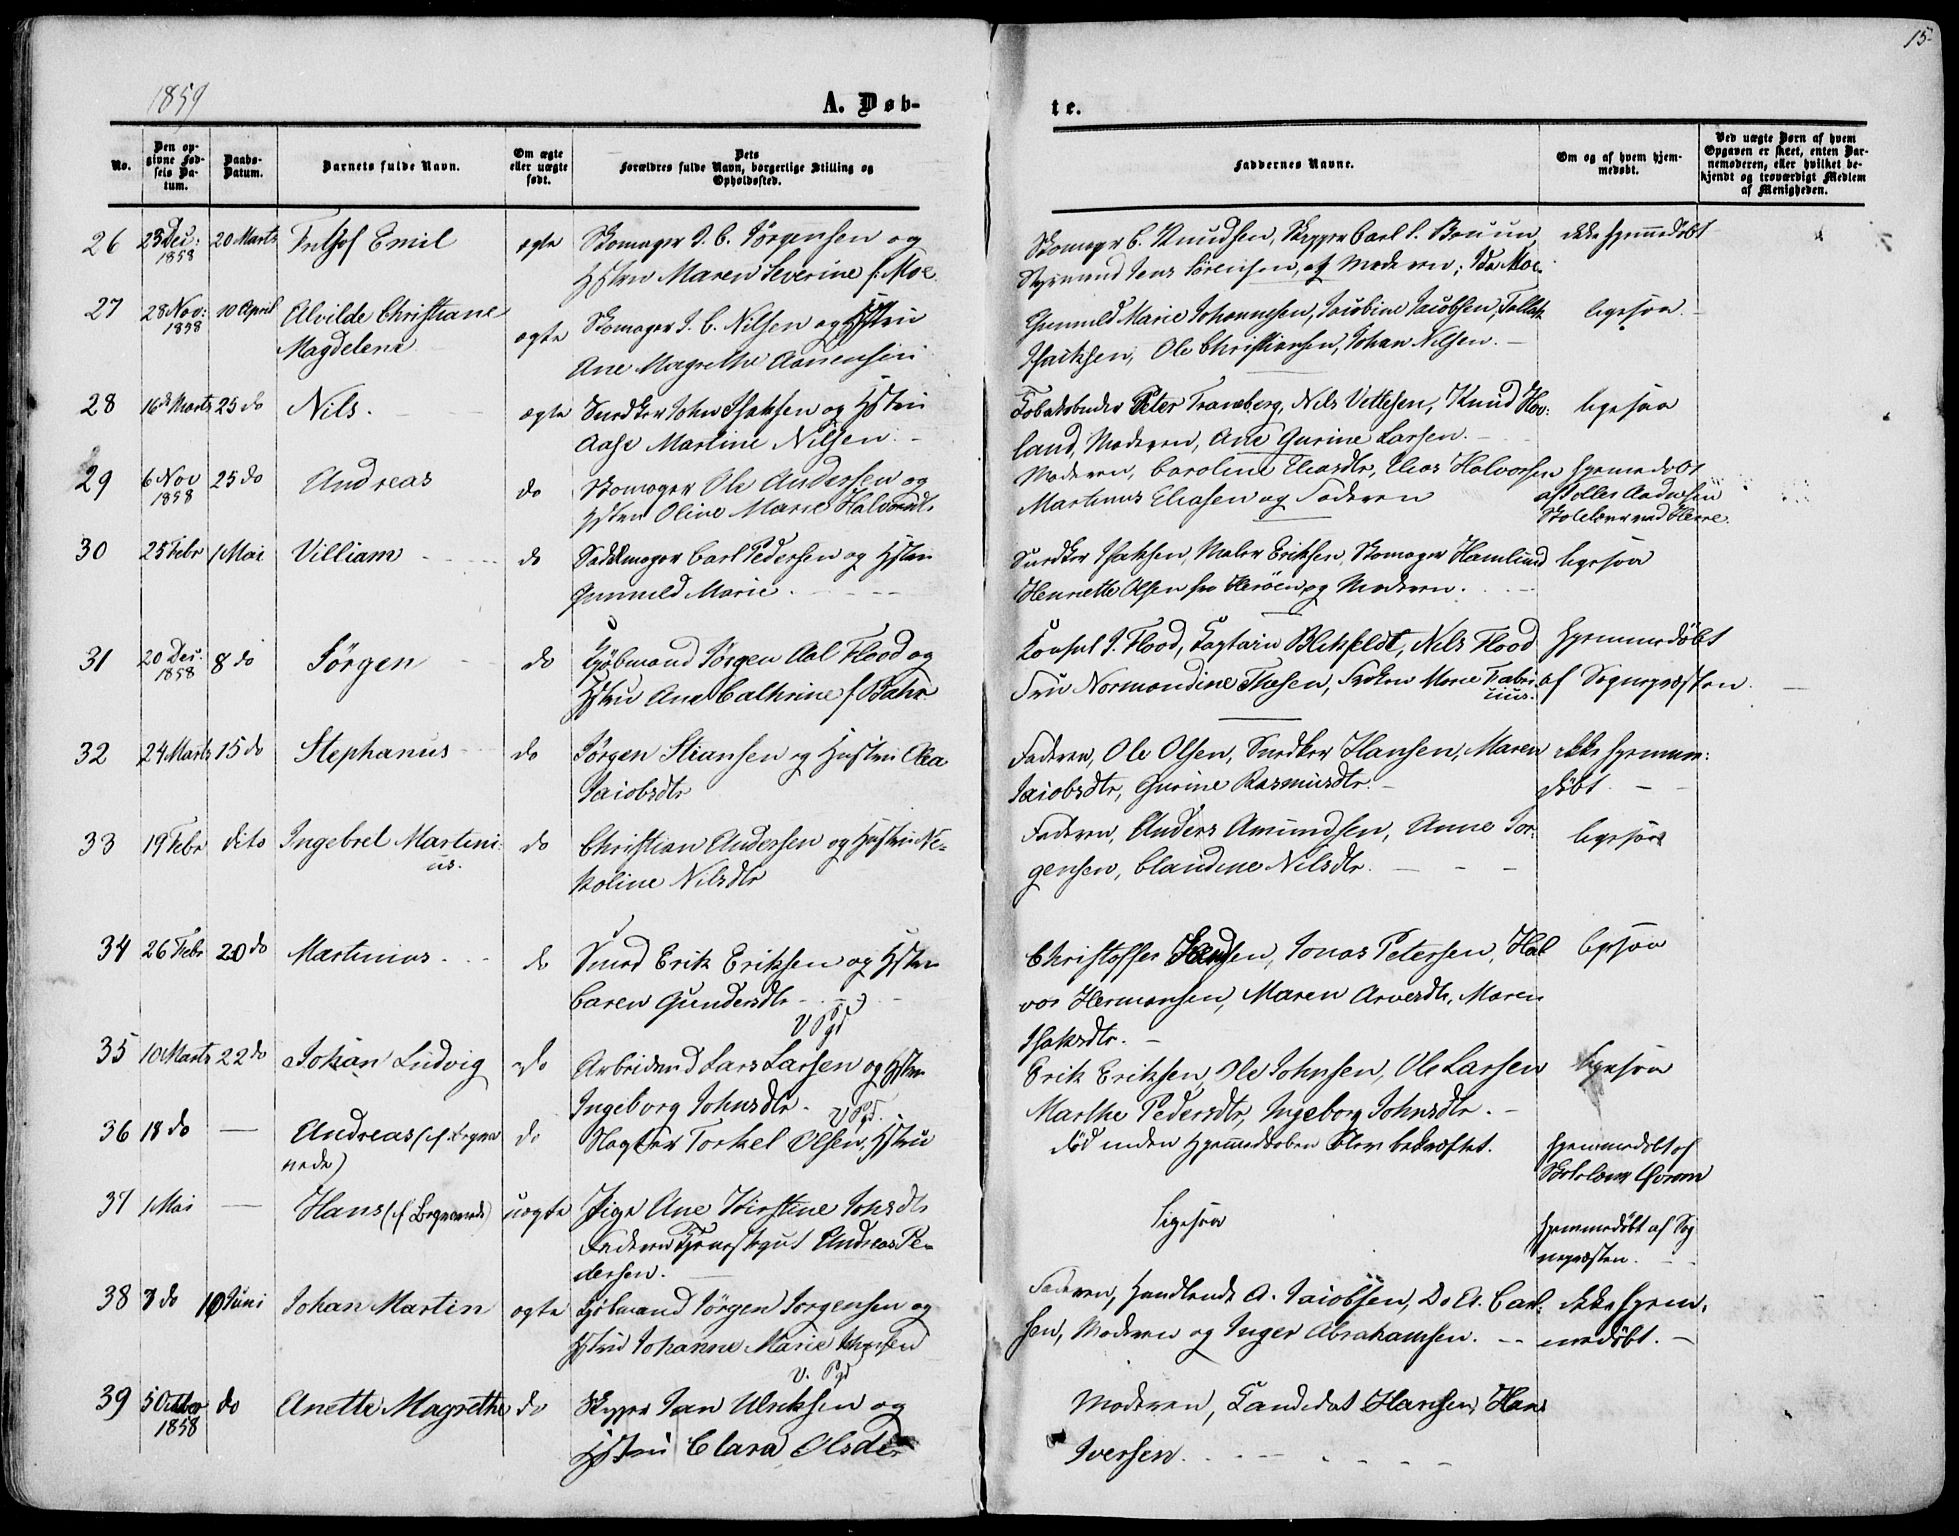 15
1859
A. Døb-
te.
No.
Den op-
givne Fød-
sels Da-
tum.
Daabs-
Datum.
Barnets fulde Navn.
Om ægte
eller uægte
født.
Dets
Forældres fulde Navn, borgerlige Stilling og
Opholdssted.
Faddernes Navne.
Om og af hvem hjem-
medøbt.
Ved uægte Børn af hvem
Opgaven er skeet, enten Bar-
nemoderen, eller hvilket be-
kjendt og troværdigt Medlem
af Menigheden.
26 23 Dec: 1858 20 Marts Frithjof Emil ægte Skomager I. C. Jørgensen og
Hstru Maren Severine f. Moe
Skomagr C. Knudsen, Skipper Carl S. Bruun
Styrmand Jens Sørensen, og Moderen; Ida Moe.
ikke hjemmedøbt
27 28 Nov: 1858 10 April Alvilde Christiane
Magdelene
ægte Skomager I. C. Nilsen og Hstru
Ane Magrethe Aanensen
Gunnild Marie Johannesen, Jacobine Jacobsen,
Isaksen, Ole Christiansen, Johan Nilsen.
ligesaa
28 16de Marts 25 do Nils. ægte Snedker John Isaksen og Hstru
Aase Martine Nilsen.
Peter Tranberg, Nils Vettesen, Knud Hov:
land, Moderen, Ane Gurine Larsen.
ligesaa
29 6 Nov 1858 25 do Andreas do Skomager Ole Andersen og
Hstru Olive Marie Halvorsdtr
Moderen, Caroline Eliasdtr, Elias Halvorsen
Martinus Eliasen og Faderen
hjemmedøbt
af Aadnesen
Skolelærer ved Herre.
30 25 Febr 1 Mai Villiam do Sadelmager Carl Pedersen og Hstru
Gunnild Marie.
Snedker Isaksen, Maler Eriksen, Skomager Hamlund
Henriette Olsen fra Herøen og Moderen.
ligesaa
31 20 Dec. 1858 8 do Jørgen do Kjøbmand Jørgen Aal Flood og
Hstru Ane Cathrine f. Bahr
Konsul J. Flood, Captain Blikfeldt, Nils Flood
Fru Normandine Thesen, Frøken Marie Fabri
cius.
hjemmedøbt
af Sognepræsten.
32 24 Marts 15 do Stephanus do Jørgen Stiansen og Hustru Olea
Jacobsdtr
Faderen, Ole Olsen, Snedker Hansen, Maren
Jacobsdtr, Gurine Rasmusdtr.
ikke hjemme:
døbt.
33 19 Febr dito Ingebret Martini
us.
do Christian Andersen og Hustru Ni-
koline Nilsdtr
Faderen, Anders Amundsen, Anne Jor:
gensen, Claudine Nilsdtr.
ligesaa
34 26 Febr 20 do Martinius do Smed Erik Eriksen og Hstru
Caren Gundersdtr
Christoffer Hansen, Jonas Petersen, Hal
vor Hermansen, Maren Arvesdtr, Maren
Isaksdtr.
ligesaa
35 10 Marts 22 do Johan Ludvig do Arbeidsmd Lars Larsen og Hstru
Ingeborg Johnsdtr.
Erik Eriksen, Ole Johnsen, Ole Larsen
Marthe Pedersdtr, Ingeborg Johnsdtr.
ligesaa
36 18 do — Andreas (f. Begra
vede)
do Slagter Torkel Olsen, Hstru
død inden Hjemmedaaben blev bekræftet.
hjemmedøbt af
Skolelærer Øvrum
37 1 Mai — Hans (f. Begravede) uægte Pige Ane Kirstine Johsdtr
Faderen Tjenestegut Andreas Pe-
dersen.
ligesaa
hjemmedøbt af Sog
nepræsten.
38 3 do 10 Juni Johan Martin ægte Kjøbmand Jørgen Jorgensen og
Hstru Johanne Marie Johnsen
Faderen, Handlende A. Jacobsen, Do A. Carl:
sen, Moderen og Inger Abrahamsen.
ikke hjem,
medøbt.
39 5 October 1858 do Anette Magrethe do Skipper Jan Ulriksen og
Hstru Clara Olsdtr
Moderen, Kandidat Hansen, Hans
Iversen.